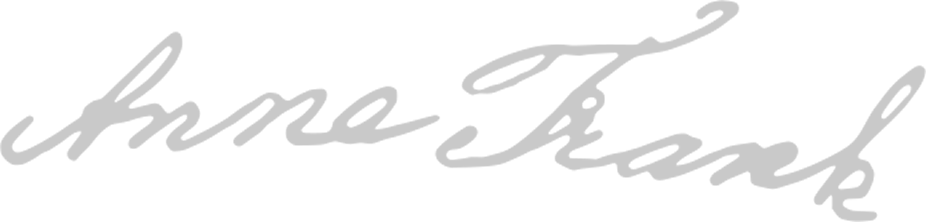 Anne Frank